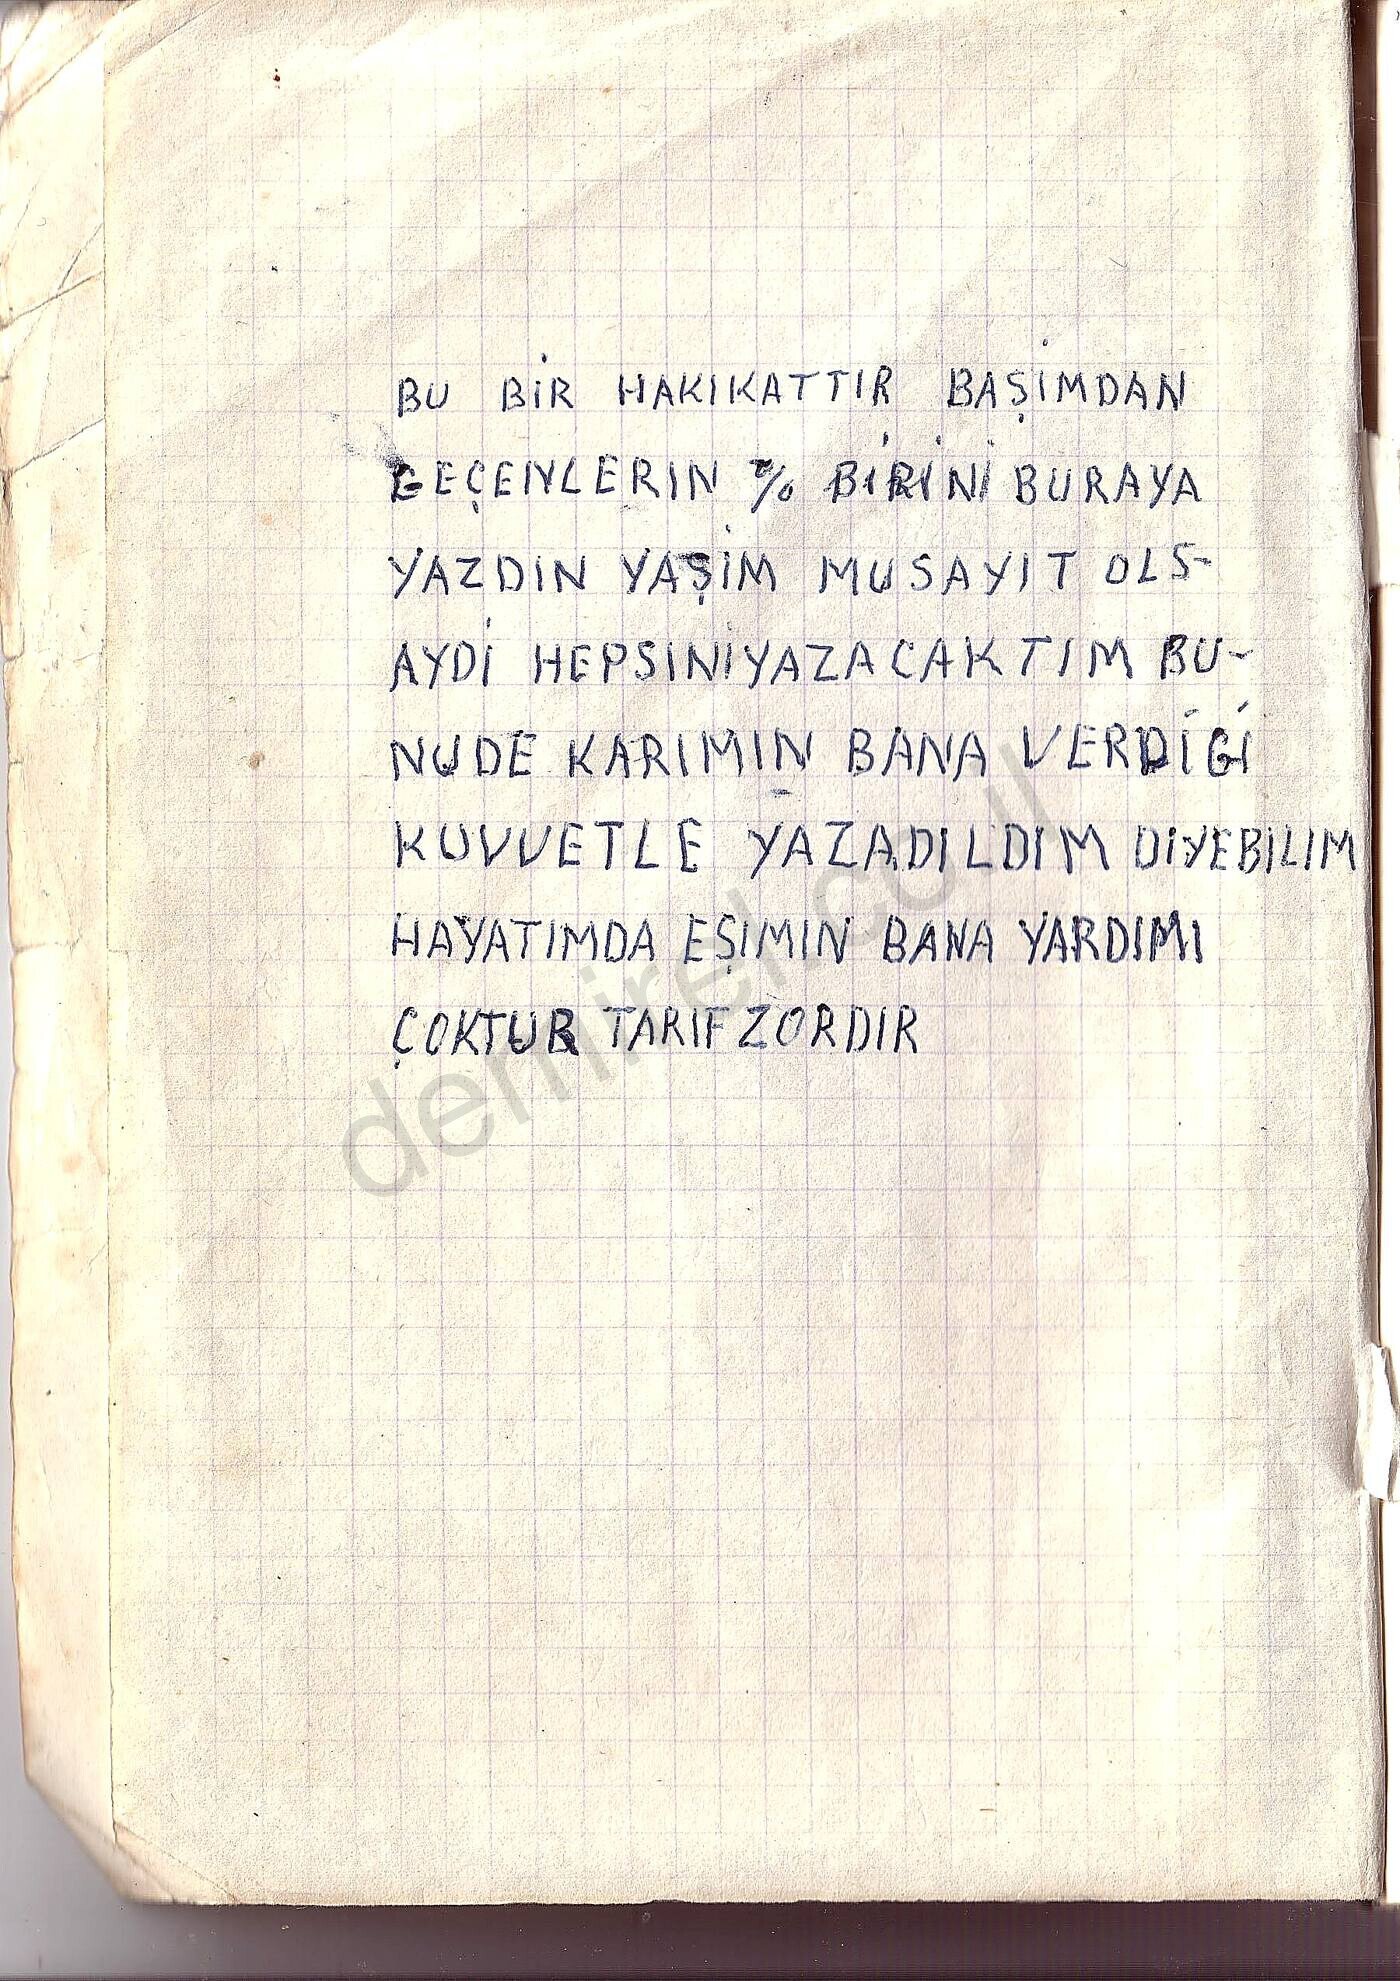 BU BİR HAKIKATTIR BAŞİMDAN
GEÇENLERIN % BİRİNİ BURAYA
YAZDIN YAŞİM MUSAYIT OLS-
AYDİ HEPSINİ YAZACAKTIM BU-
NUDE KARIMIN BANA VERDİĞİ
KUVVETLE YAZADILDIM DİYEBILIM
HAYATIMDA EŞIMIN BANA YARDIMI
ÇOKTUR TARIF ZORDIR